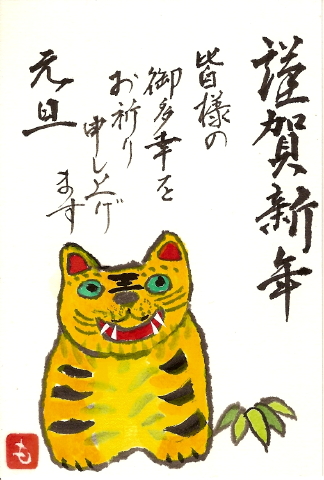 謹賀新年
皆様の
御多幸を
お祈り
申し上げ
ます
元旦
も